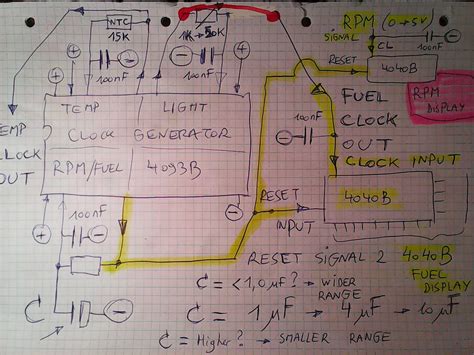 NTC
15K
1K → 50K
RPM (0→5V)
SIGNAL
CL
100nF
100nF
100nF
RESET
4040B
RPM
DISPLAY
TEMP
CLOCK
LIGHT
GENERATOR
RPM/FUEL
4093B
TEMP
CLOCK
OUT
FUEL
CLOCK
OUT
CLOCK INPUT
100nF
100nF
RESET
INPUT
4040B
RESET SIGNAL 2 4040B
FUEL
DISPLAY
C = <1,0µF? → WIDER
RANGE
C = 1µF → 4µF → 10µF
C = Higher? → SMALLER RANGE
C